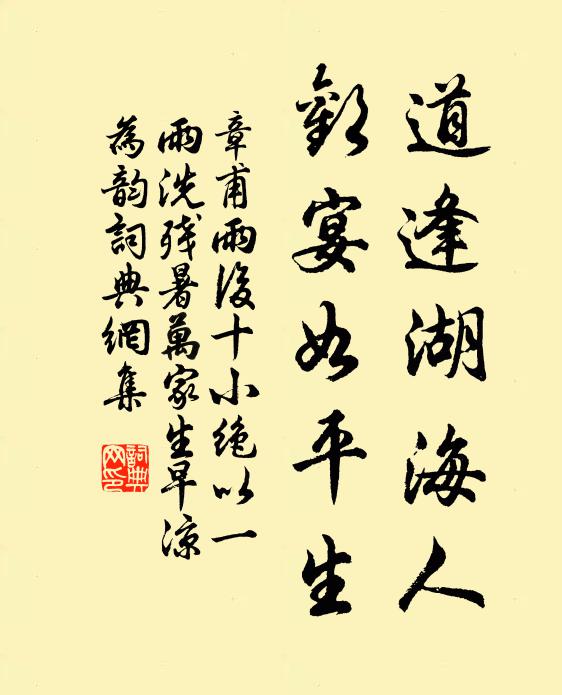 道逢湖海人
歡宴如平生
章甫雨後十小绝以一
雨洗残暑萬家生早凉
為韵詞典網集
詞典
网印